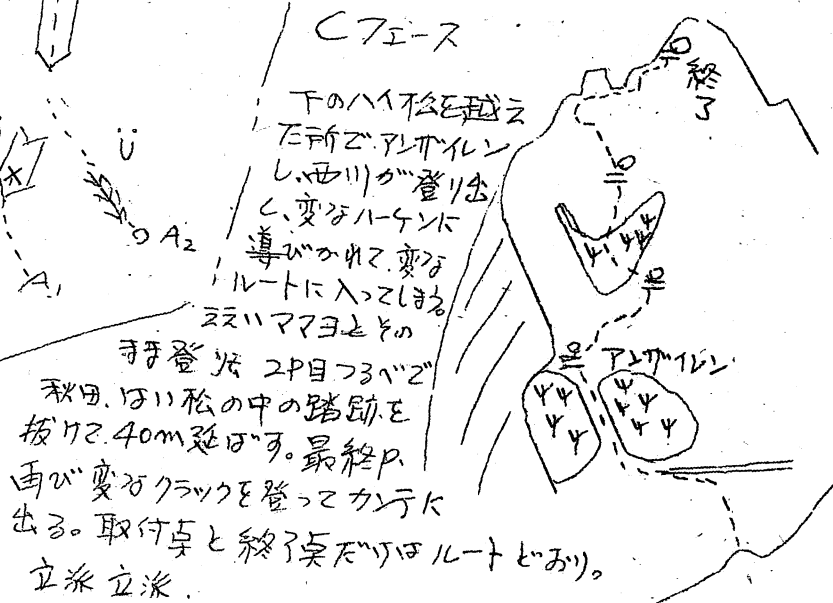 Cフェース
下のハイ松を越え
た所で.アンザイレン
し、西川が登り出
し、変なハーケンに
導びかれて、変な
ルートに入ってしまう。
ええいママヨとその
まま登り 2P目つるべで
秋田、はい松の中の踏跡を
抜けて、40m延ばす。最終P、
再び変なクラックを登ってカンテに
出る。取付点と終了点だけはルートどおり。
立派立派.
終
了
アンザイレン
Ü
A2
A1